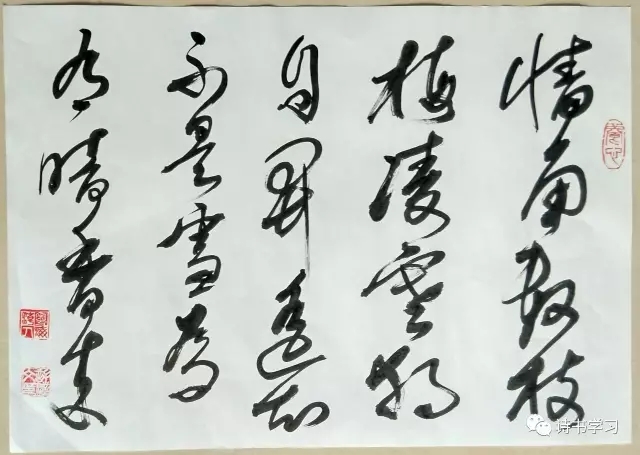 墙角数枝
梅凌寒独
自開遥知
不是雪為
有暗香来
诗书学习